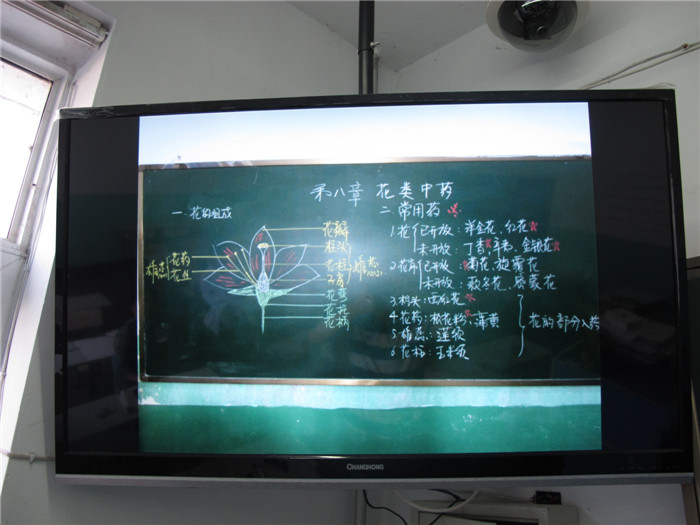 第八章 花类中药
一 花的组成
二 常用药
花瓣
柱头
花柱
子房
雌蕊
花萼
花托
花柄
雄蕊
花药
花丝
1.花 已开放：洋金花、红花
未开放：丁香 辛夷、金银花
2.花序 已开放：菊花、旋覆花
未开放：款冬花、密蒙花
3.柱头：西红花
4.花药：松花粉、蒲黄
5.雄蕊：莲须
6.花柱：玉米须
花的部分入药
CHANGHONG